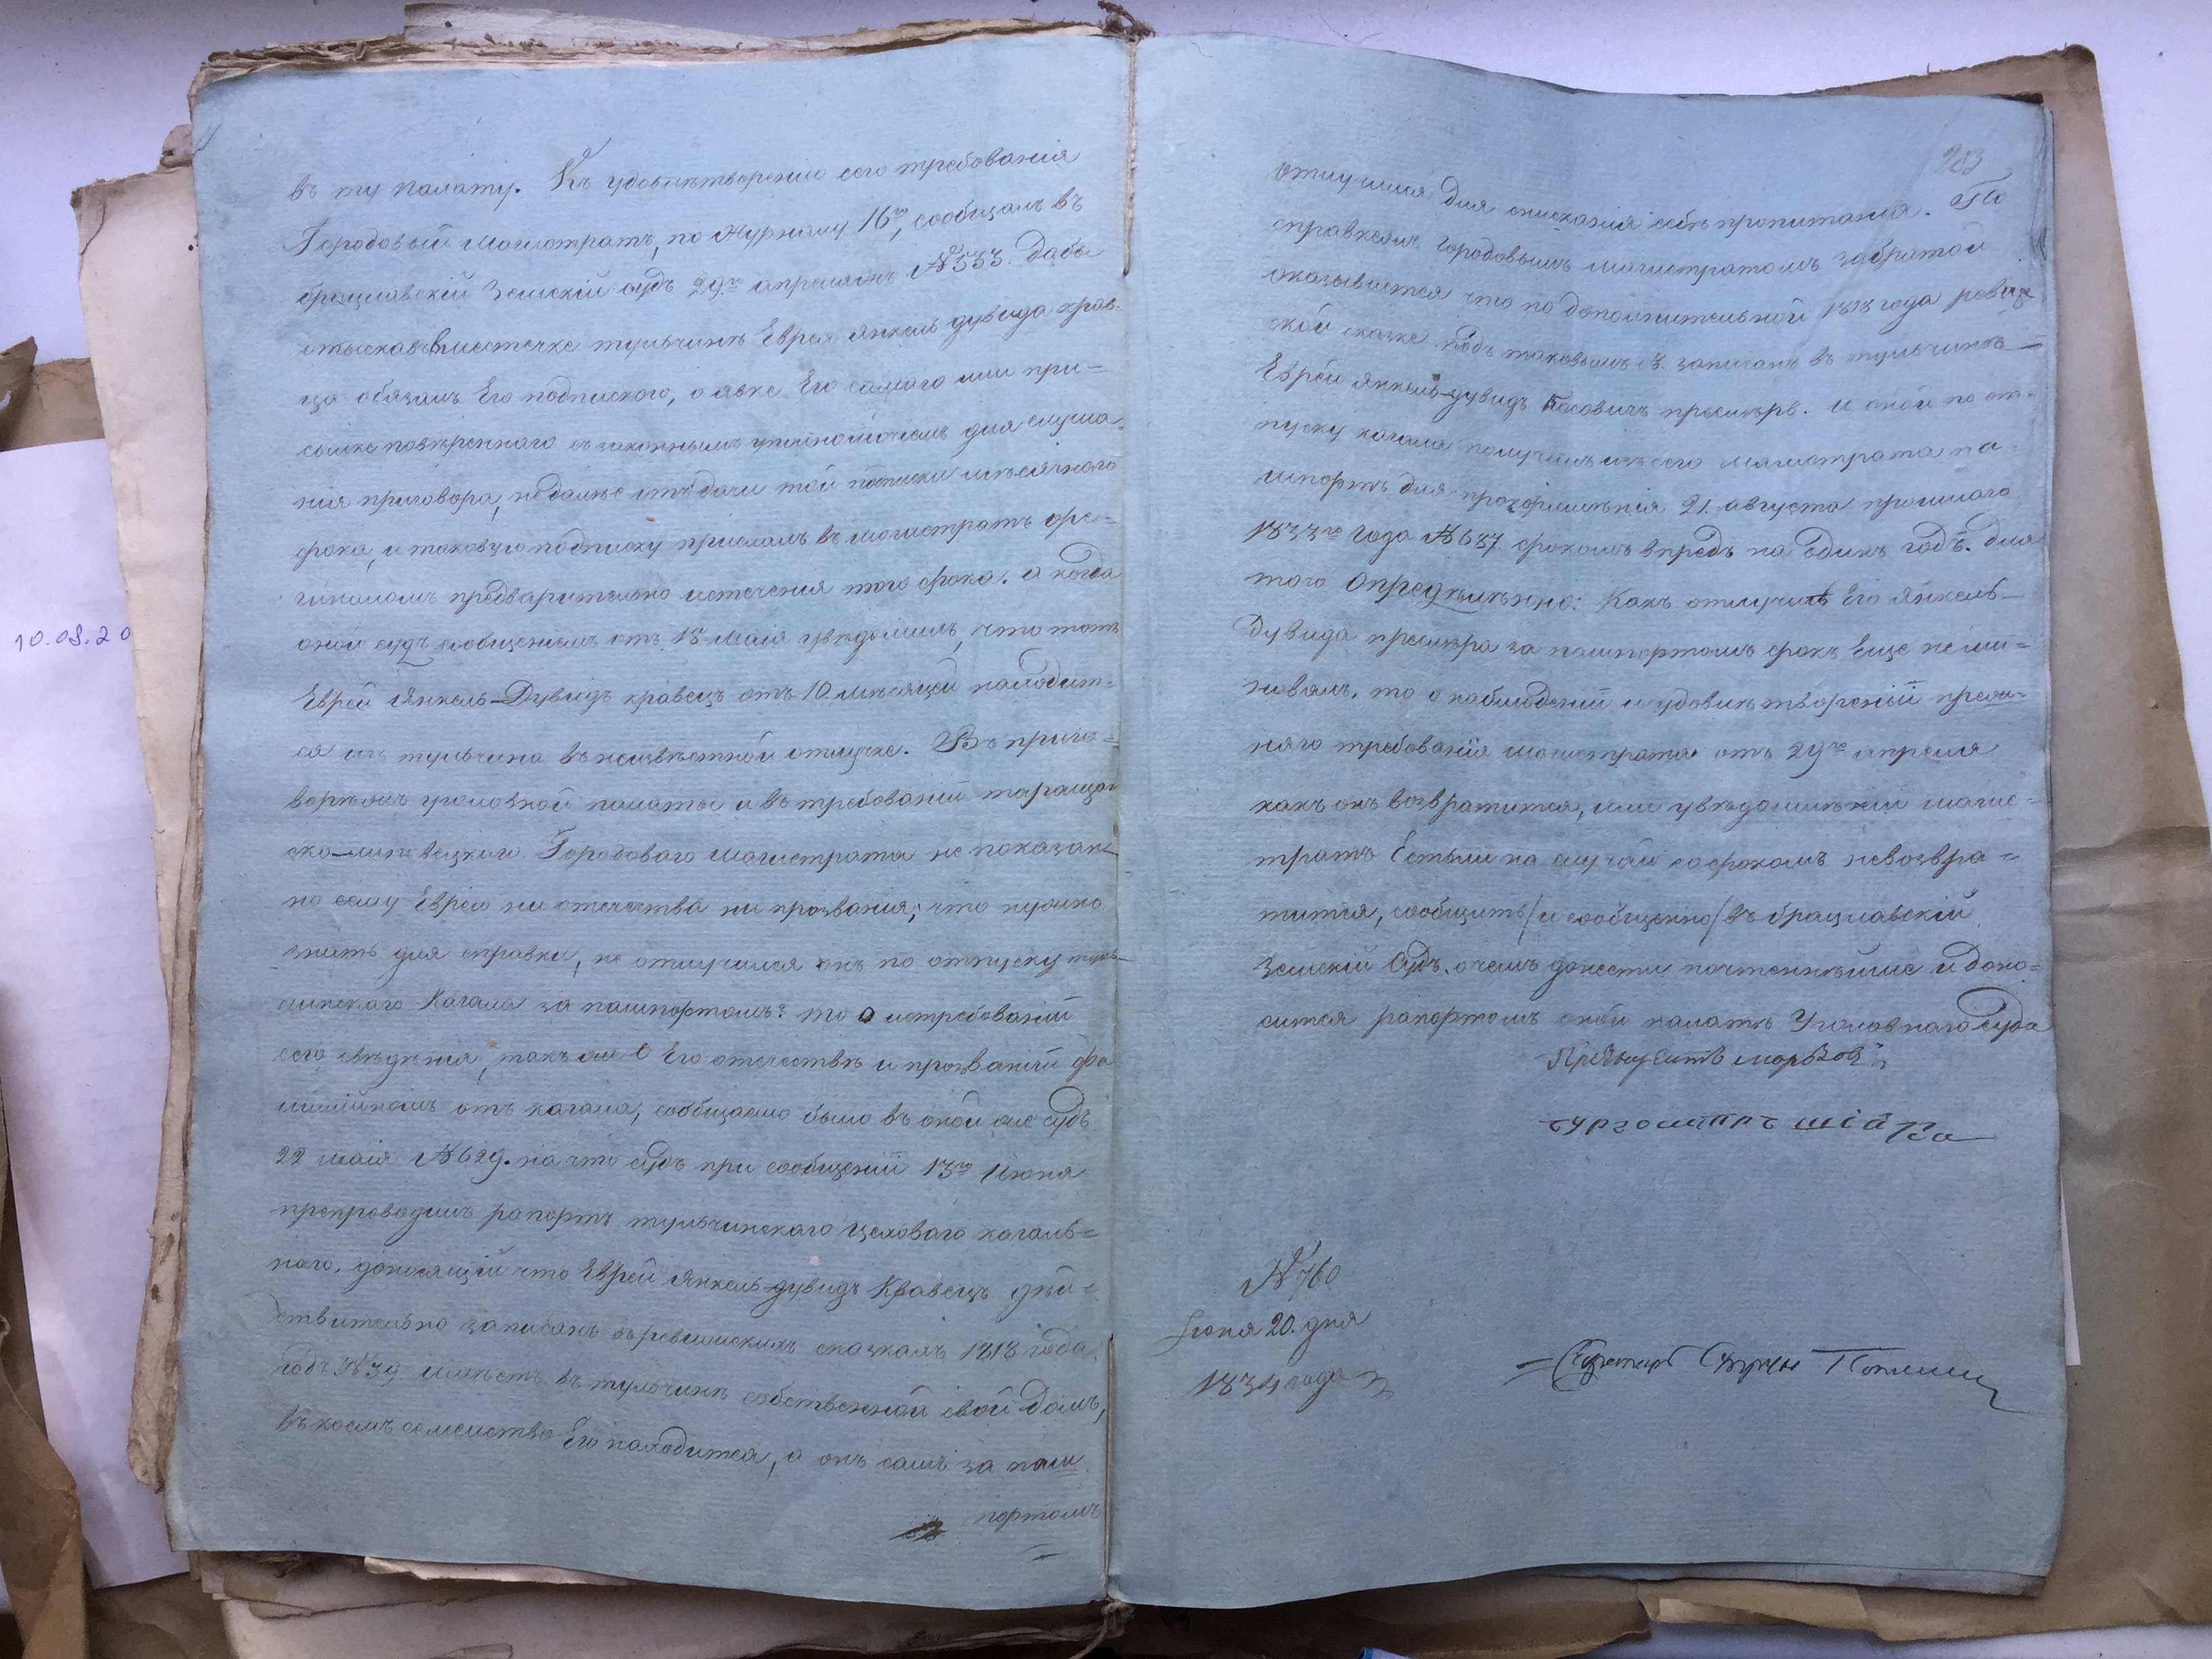 въ ту палату. Къ удовлетворенію сего требованія
Городовый магистратъ, по журналу 16го, сообщалъ въ
брацлавскій Земскій судъ 29го апреля № 533. дабы
отыскавъ въ местечке тульчинѣ Еврея янкель дувида крав-
ца обязалъ Его подпискою, о явке Его самаго или при=
сылке повѣреннаго съ законнымъ уполномочіемъ для слуша-
нія приговора, не далѣе отъ дачи той подписки мѣсячного
срока, и таковую подписку прислалъ въ магистратъ
предварительно истеченія того срока. а когда
оной судъ сообщеніемъ отъ 18 маія увѣдомилъ, что тотъ
Еврей Янкель-Дувидъ кравецъ отъ 10 мѣсяцей находит=
ся изъ тульчина въ неизвѣстной отлучке. Въ приго=
ворѣ уголовной палаты и въ требованіи таращан
ско-липовецкого Городоваго магистрата не показано
по сему Еврею ни отечества ни прозванія; что нужно
знать для справки, не отлучился онъ по отпуску туль-
чинскаго Кагала за пашпортомъ: то о истребованіи
сего свѣдѣнія, такъ же о Его отечествѣ и прозваніи фа
милійномъ отъ кагала, сообщаемо было въ оной же судъ
22 маія № 629. на что судъ при сообщеніи 13го Июня
препроводилъ рапортъ тульчинскаго цеховаго кагаль=
ного, доносящій что Еврей янкель-дувидъ Кравецъ дѣй=
ствительно записанъ въ ревизскихъ сказкахъ 1818 года
подъ № 39 имѣетъ въ тульчинѣ собственной свой домъ,
въ коемъ семейство Его находится, а онъ самъ за паш
портомъ
283
отлучился для снисканія себѣ пропитанія. По
справкамъ городовымъ магистратомъ забратой
оказывается что по дополнительной 1818 года ревиз
ской сказке подъ таковымъ №. записанъ въ тульчинѣ
Еврей янкель-дувидъ Іосовичъ пресмеръ. и оной по от=
пуску кагала получилъ изъ сего магистрата па=
шпортъ для прокормленія 21. августа прошлаго
1833го года № 687. срокомъ впредь на одинъ годъ. для
того Опредѣлѣнно: Какъ отлучкѣ Его янкель-
Дувида пресмера за пашпортомъ срокъ Еще не ми=
новалъ. то о наблюденіи и удовлетвореніи преж=
няго требованія магистрата отъ 29го апреля
какъ онъ возвратится, или увѣдомленіи магис=
тратъ Естьли на случай со срокомъ невозвра=
тится, сообщить /и сообщенно/ въ брацлавскій
Земскій Судъ. о чемъ донести почтеннѣйше и доно=
сится рапортомъ оной палатѣ Уголовнаго Суда
бургомистръ
№ 760
Іюня 20. дня
1834 года
Секретарь
10.08.20